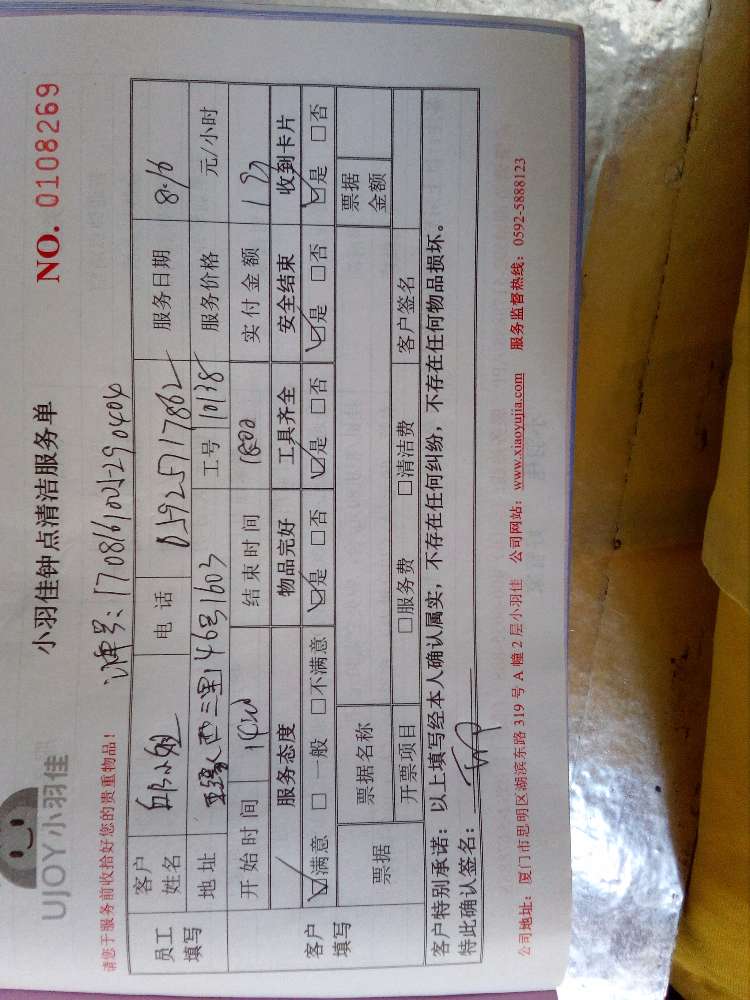 UJOY小羽佳
小羽佳钟点清洁服务单
NO. 0108269
请您于服务前收拾好您的贵重物品!
订单号:
员工填写
客户姓名 小姐 电话 05925717862 服务日期 8.16
地址 西三里146号1603 工号 10138 服务价格 元/小时
开始时间 结束时间 1800 实付金额
客户填写
服务态度 物品完好 工具齐全 安全结束 收到卡片
☑满意 □一般 □不满意 ☑是 □否 ☑是 □否 ☑是 □否 ☑是 □否
票据 票据名称 票据金额
开票项目 □服务费 □清洁费 客户签名
客户特别承诺:以上填写经本人确认属实,不存在任何纠纷,不存在任何物品损坏。
特此确认签名:
公司地址:厦门市思明区湖滨东路 319 号 A 幢 2 层小羽佳 公司网站:www.xiaoyujia.com 服务监督热线:0592-5888123